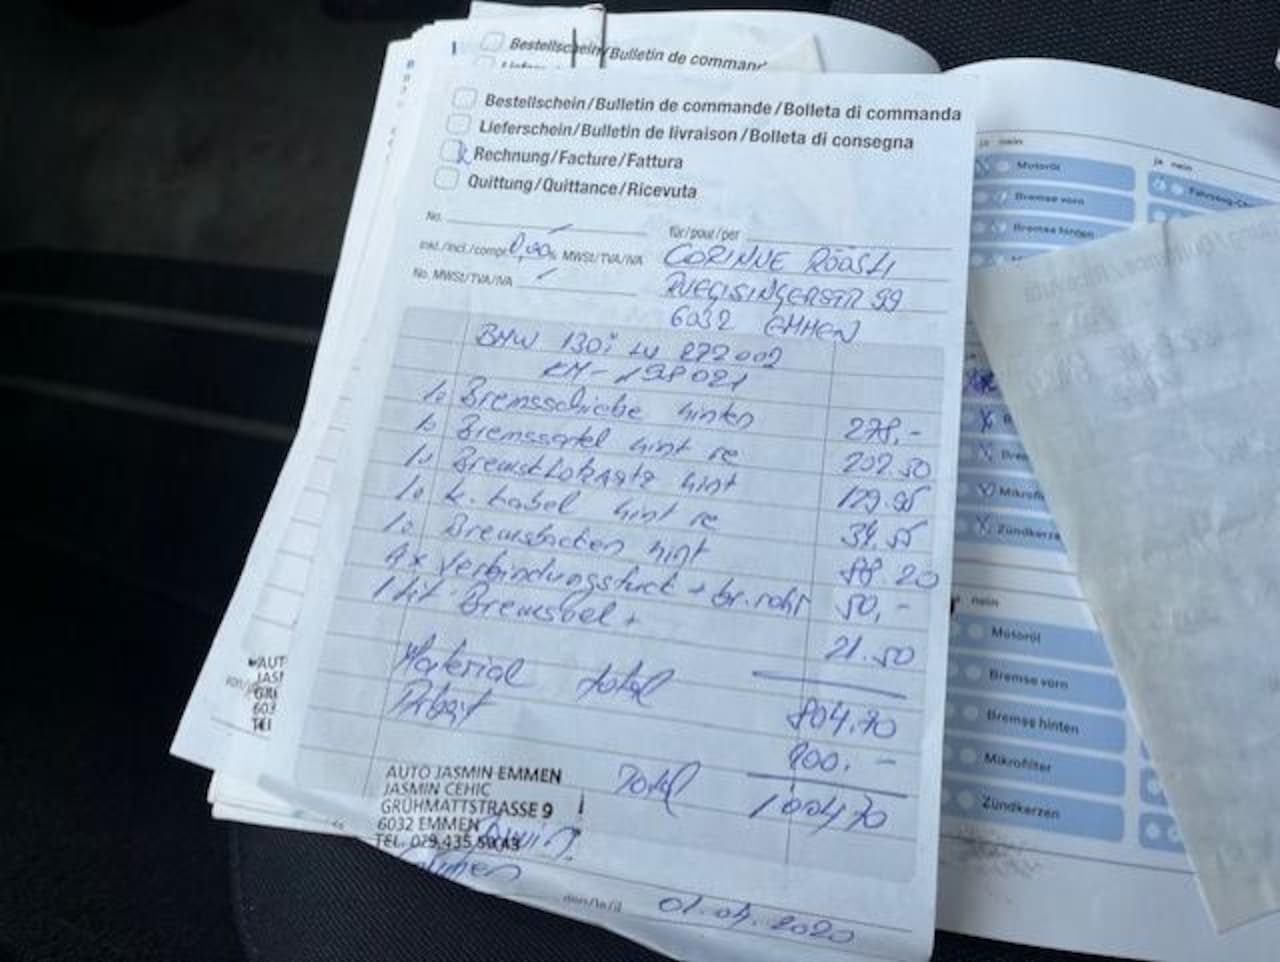 Bestellschein/Bulletin de command
Bestellschein/Bulletin de commande/Bolleta di commanda
Lieferschein/Bulletin de livraison/Bolleta di consegna
Rechnung/Facture/Fattura
Quittung/Quittance/Ricevuta
No.
für/pour/per
inkl./incl./compr. 0,00% MWSt/TVA/IVA
CORINNE RÖÖSLI
No. MWSt/TVA/IVA
RUEGISINGERSTR 99
6032 EMMEN
BMW 130i LU 272002
KM - 198021
1x Bremsschiebe hinten 278,-
1x Bremssattel hint re 202.50
1x Bremsklotzsatz hint 129.95
1x k. kabel hint re 34.55
1x Bremsbacken hint 88.20
4x Verbindungsstuck + br.rohr 50,-
1 kit Bremsbel + 21.50
Material total 804.70
Arbeit 200.-
Total 1004.70
AUTO JASMIN EMMEN
JASMIN CEHIC
GRÜHMATTSTRASSE 9
6032 EMMEN
TEL.
den/le/il 01.04.2020
ja nein
Motoröl
Bremse vorn
Bremse hinten
ja nein
Mikrofi
Zündkerze
nein
Motoröl
Bremse vorn
Bremse hinten
Mikrofilter
Zündkerzen